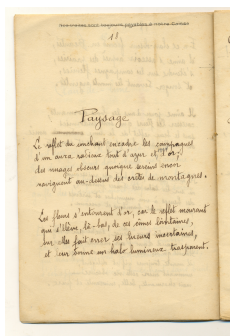 11
Paysage
Le reflet du couchant encadre les campagnes
d'un aura radieux tout d'azur et d'or,
des nuages obscurs quoique sereins encor
naviguent au-dessus des crêtes de montagnes.
Les fleurs s'entourent d'or, car le reflet mourant
qui s'élève, là-bas, de ces cimes lointaines,
sur elles fait errer ses lueurs incertaines,
et leur donne un halo lumineux trasparent.